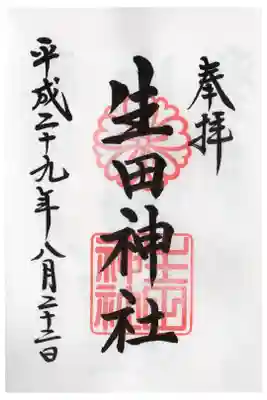 奉拝
生田神社
平成二十九年八月二十二日
生田神社